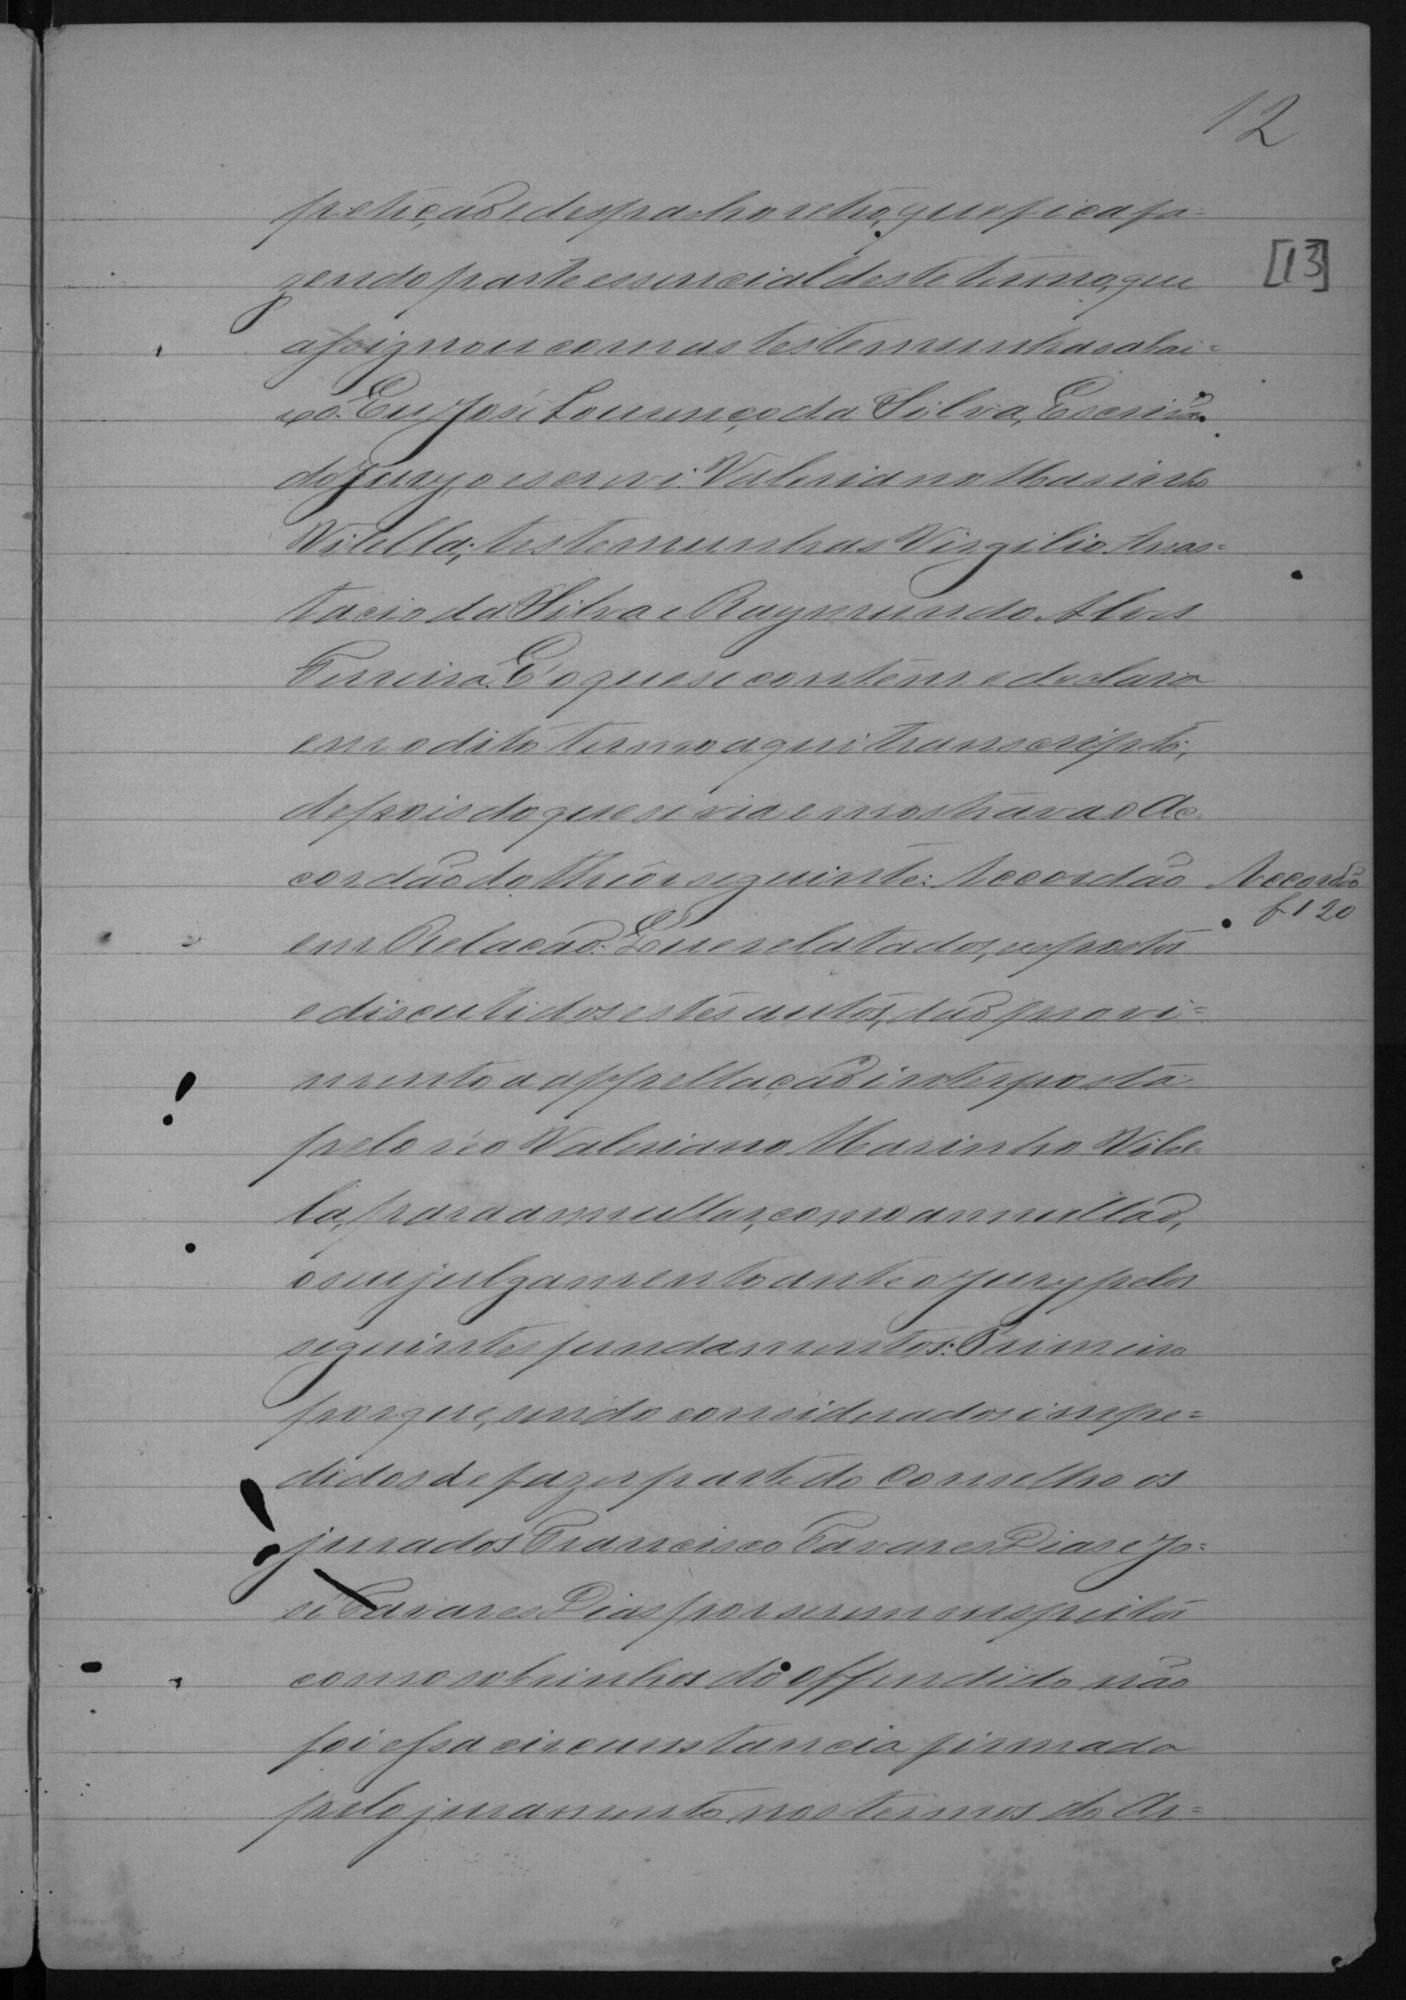 12
petição e despacho retro, que fica fa=
[13]
zendo parte essencial deste termo, que
assignou com as testemunhas abai=
xo. Eu José Lourenço da Silva, Escrivão
do Jury, o escrevi. Valeriano Marinho
Vilella; testemunhas Virgilio Anas=
tacio da Silva e Raymundo Alves
Ferreira. E' o que se contém e declara
em o dito termo aqui transcripto;
depois do que se via e mostrava o Ac
cordão do theôr seguinte: Accordão
Accordão
f 120
em Relação. Que relatados, expostos
e discutidos estes autos, dão provi=
mento a appellação interposta
pelo réo Valeriano Marinho Vilel
la, para annullar, como annullão,
o seu julgamento ante o jury pelos
seguintes fundamentos: Primeiro
porque, sendo considerados impe=
didos de fazer parte do Conselho os
jurados Francisco Tavares Dias e Jo=
sé Tavares Dias por serem suspeitos
como sobrinhos do offendido não
foi essa circunstancia firmada
pelo juramento nos termos do Ar=